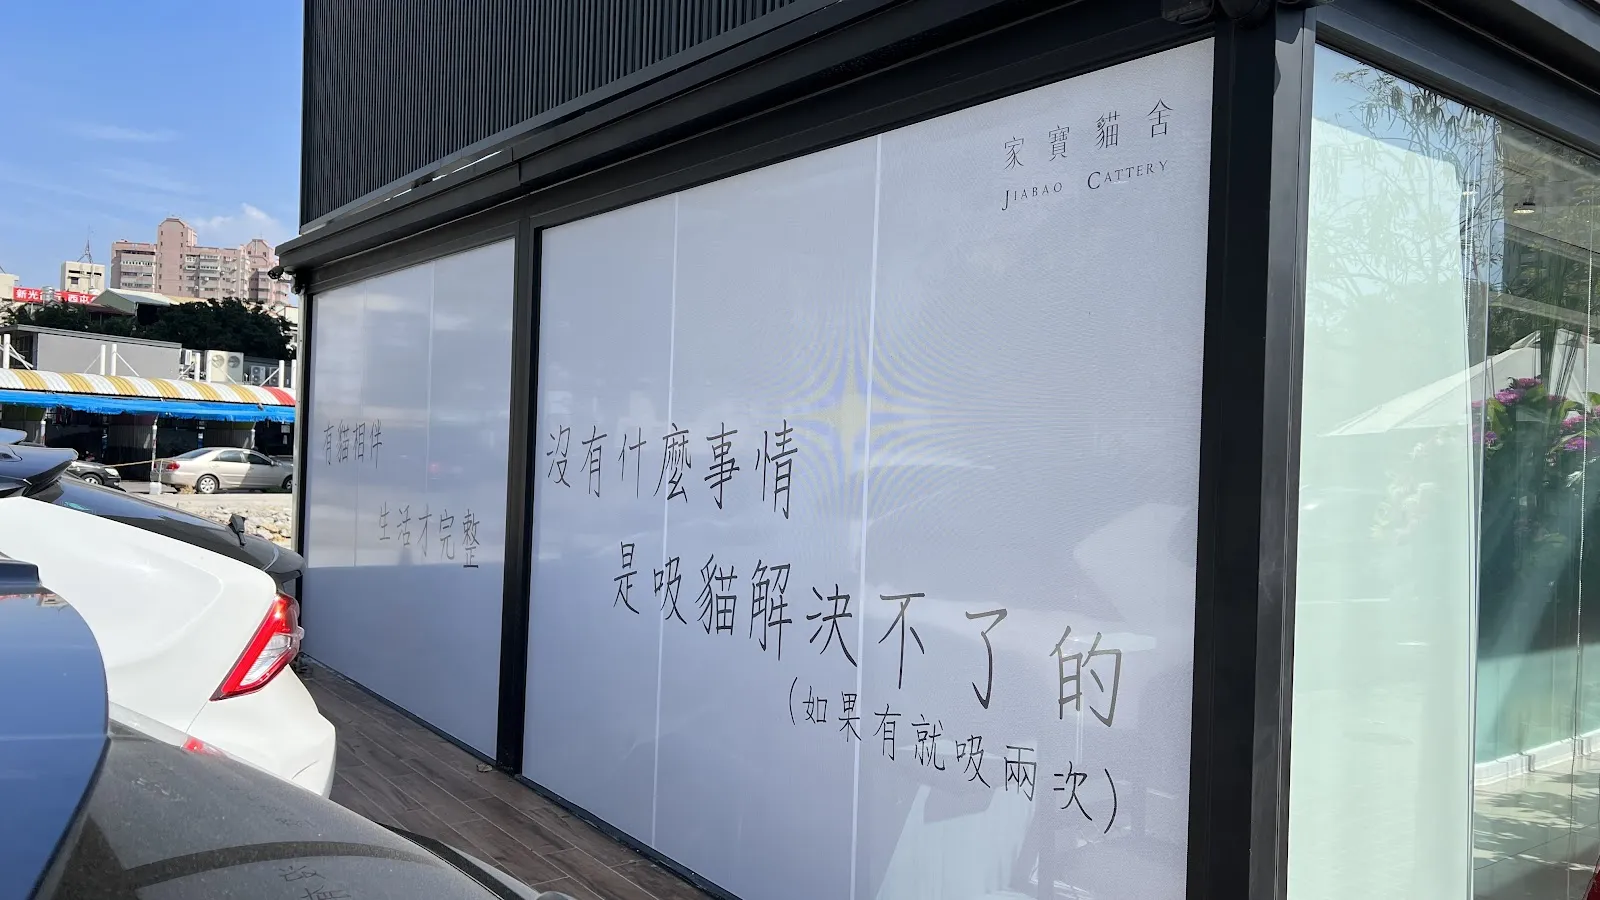 家寶貓舍
JIABAO CATTERY
有貓相伴
生活才完整
沒有什麼事情
是吸貓解決不了的
(如果有就吸兩次)
新光